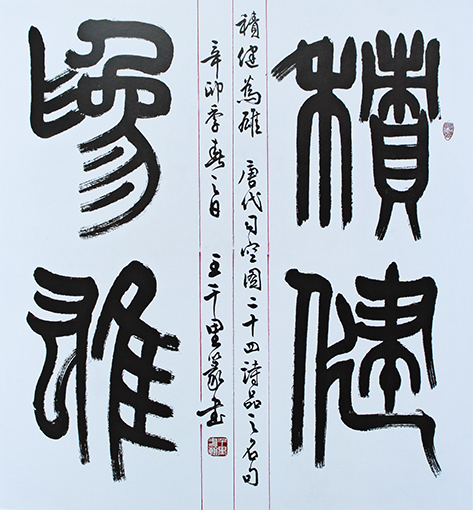 積健
為雄
積健為雄 唐代司空图二十四詩品之名句
辛卯季春之日 王千里篆書